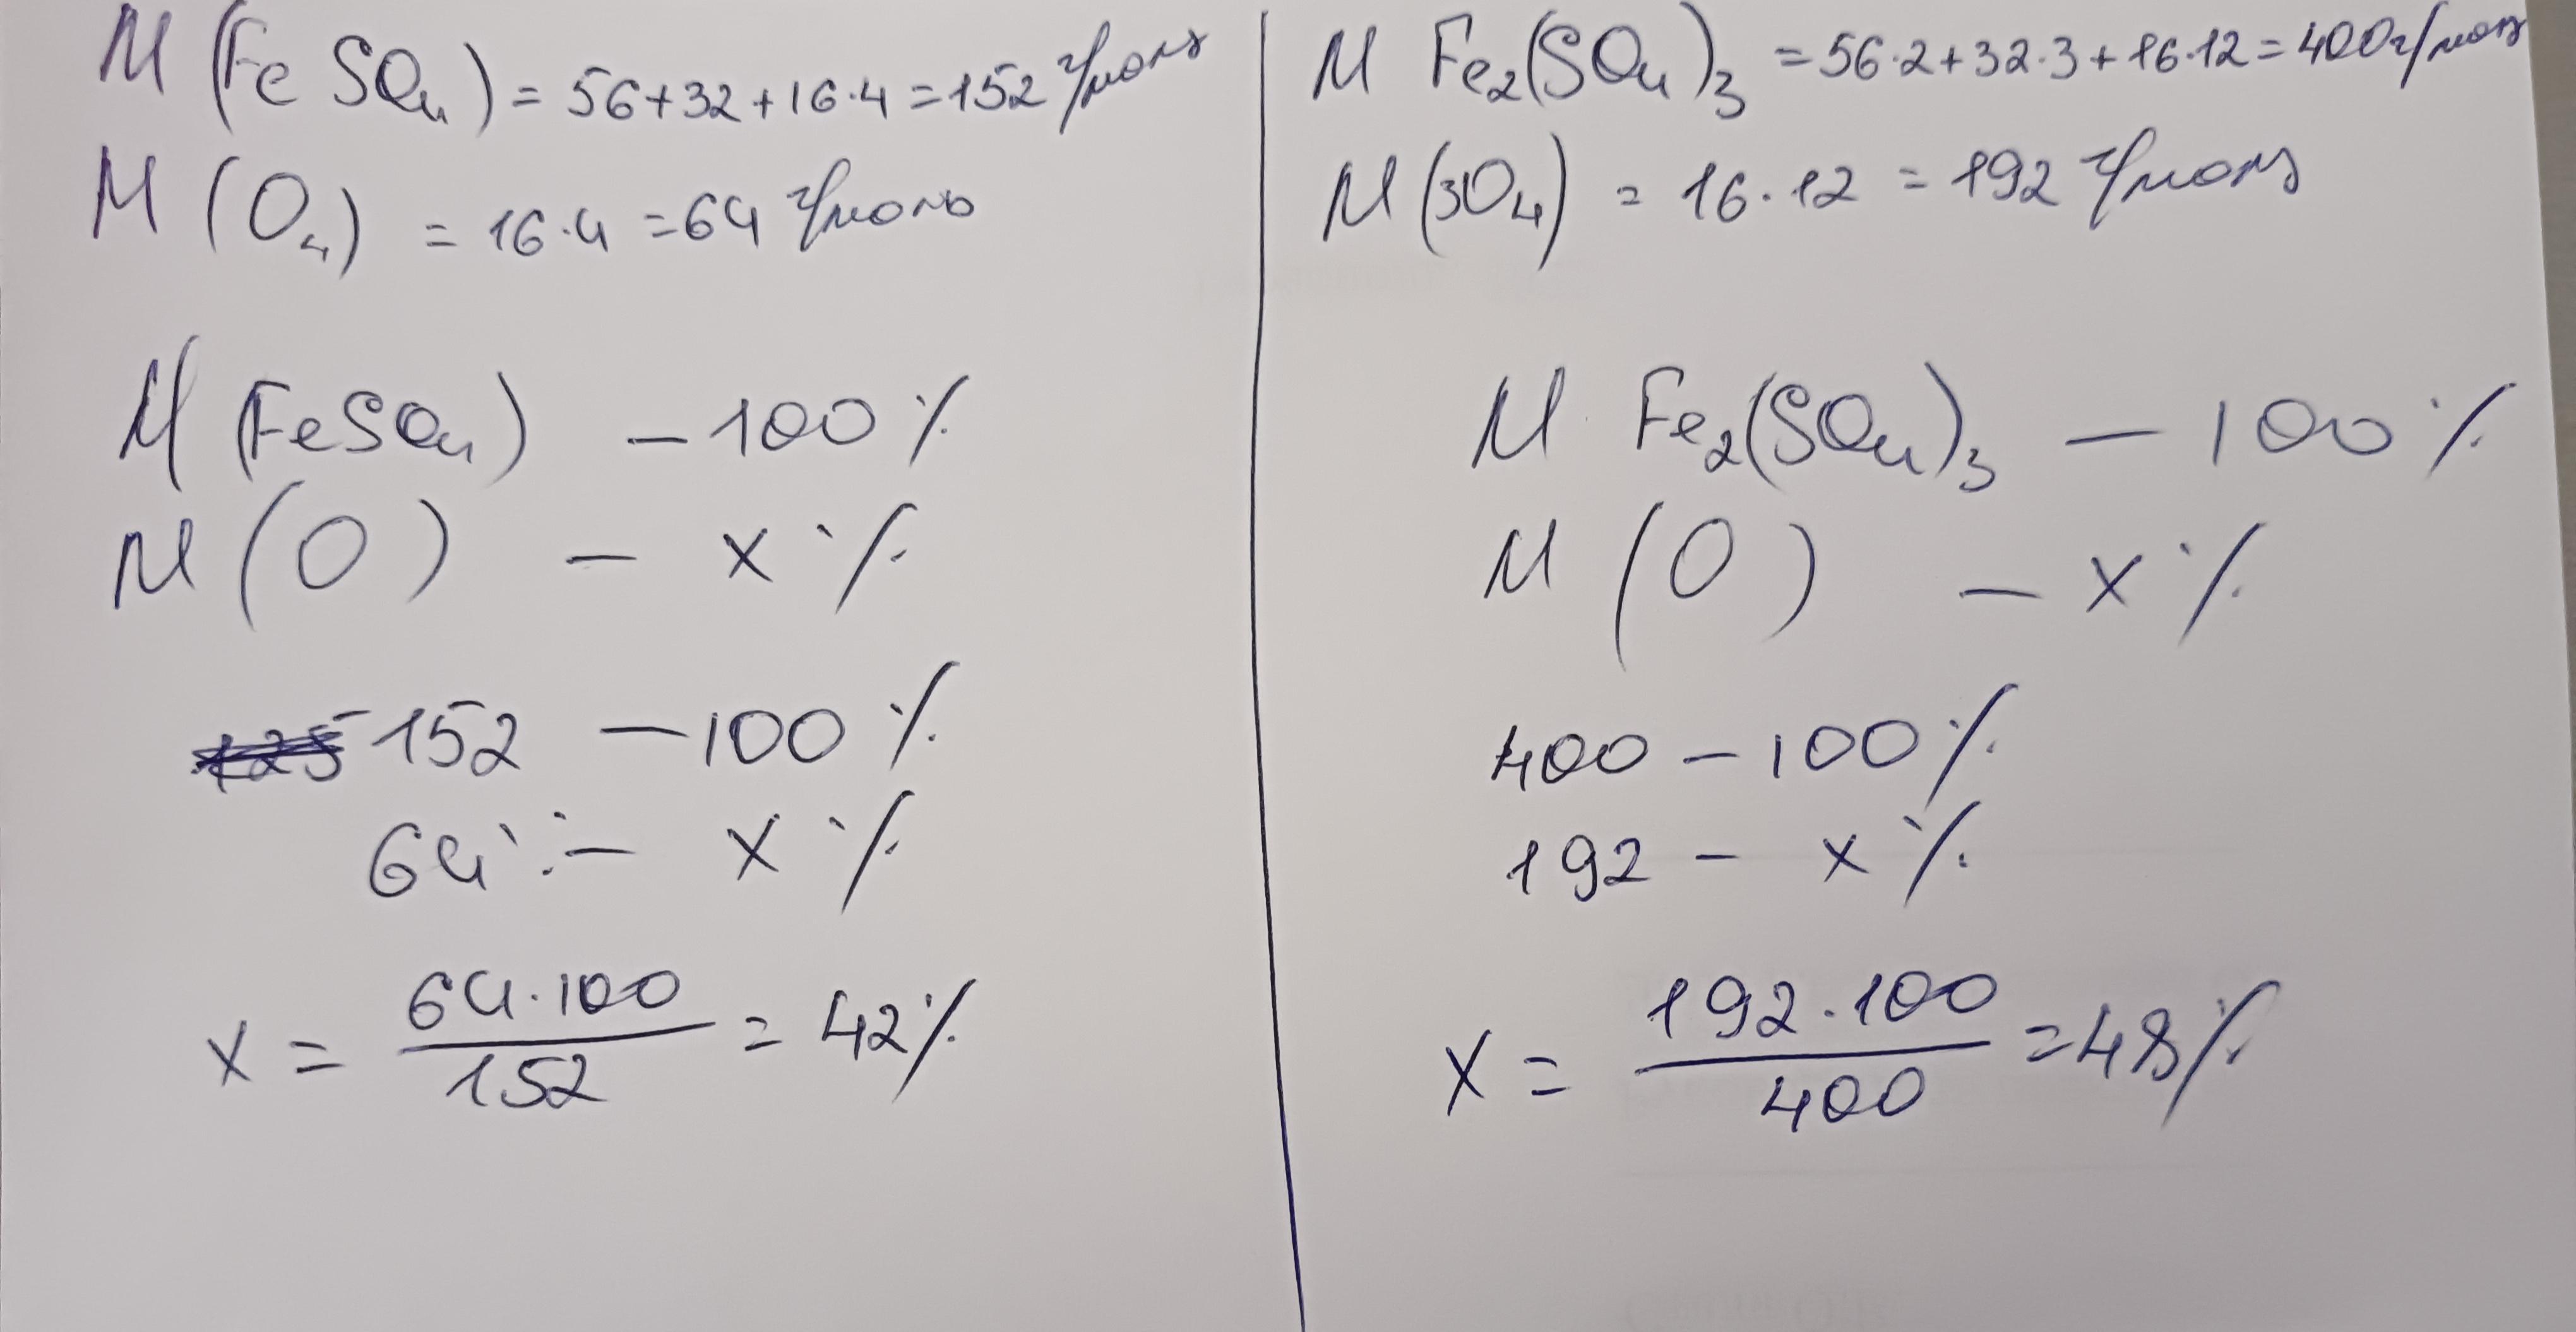 M (FeSO₄) = 56+32+16·4 = 152 г/моль
M (O₄) = 16·4 = 64 г/моль
M (FeSO₄) – 100 %
M (O) – x %
152 – 100 %
64 – x %
x = 64·100 / 152 = 42 %
M Fe₂(SO₄)₃ = 56·2+32·3+16·12 = 400 г/моль
M (3O₄) = 16·12 = 192 г/моль
M Fe₂(SO₄)₃ – 100 %
M (O) – x %
400 – 100 %
192 – x %
x = 192·100 / 400 = 48 %